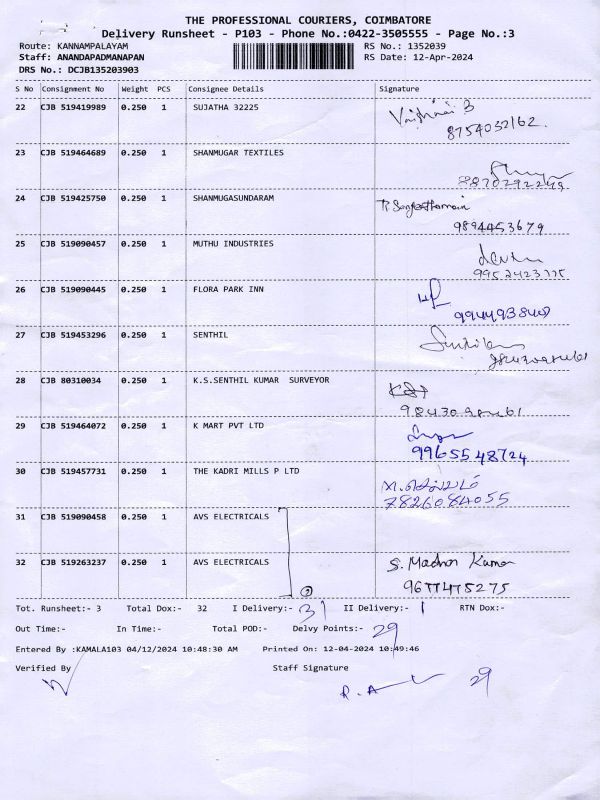 THE PROFESSIONAL COURIERS, COIMBATORE
Delivery Runsheet - P103 - Phone No.:0422-3505555 - Page No.:3
Route: KANNAMPALAYAM RS No.: 1352039
Staff: ANANDAPADMANAPAN RS Date: 12-Apr-2024
DRS No.: DCJB135203903
S No Consignment No Weight PCS Consignee Details Signature
22 CJB 519419989 0.250 1 SUJATHA 32225
8754032162.
23 CJB 519464689 0.250 1 SHANMUGAR TEXTILES
8870292249
24 CJB 519425750 0.250 1 SHANMUGASUNDARAM
9894453679
25 CJB 519090457 0.250 1 MUTHU INDUSTRIES
26 CJB 519090445 0.250 1 FLORA PARK INN
27 CJB 519453296 0.250 1 SENTHIL
28 CJB 80310034 0.250 1 K.S.SENTHIL KUMAR SURVEYOR
29 CJB 519464072 0.250 1 K MART PVT LTD
9965548724
30 CJB 519457731 0.250 1 THE KADRI MILLS P LTD
7826084055
31 CJB 519090458 0.250 1 AVS ELECTRICALS
32 CJB 519263237 0.250 1 AVS ELECTRICALS S. Madhan Kumar
2 9677475275
Tot. Runsheet:- 3 Total Dox:- 32 I Delivery:- 31 II Delivery:- 1 RTN Dox:-
Out Time:- In Time:- Total POD:- Delvy Points:- 29
Entered By :KAMALA103 04/12/2024 10:48:30 AM Printed On: 12-04-2024 10:49:46
Verified By Staff Signature
29